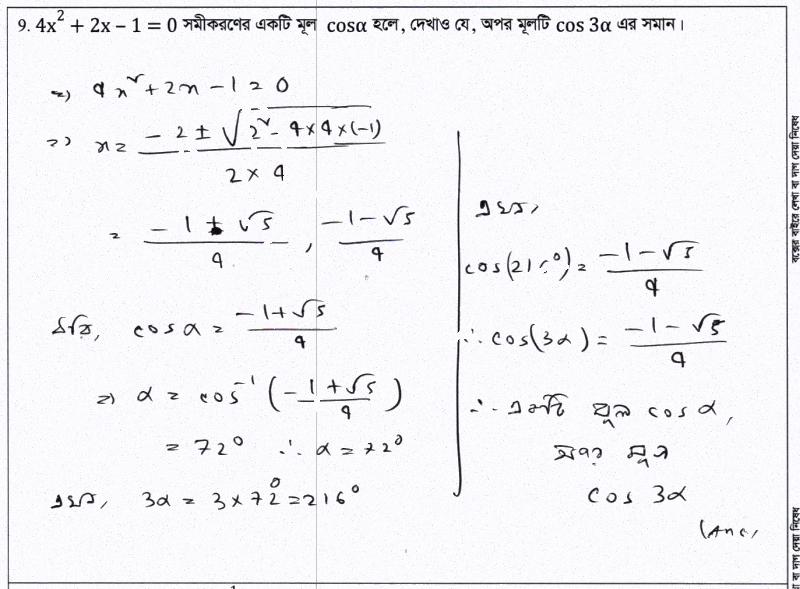 9. 4x² + 2x − 1 = 0 সমীকরণের একটি মূল cosα হলে, দেখাও যে, অপর মূলটি cos 3α এর সমান।
=> 4x² + 2x − 1 = 0
=> x = (−2 ± √(2² − 4×4×(−1))) / (2×4)
= (−1 + √5)/4 , (−1 − √5)/4
ধরি, cosα = (−1+√5)/4
=> α = cos⁻¹((−1+√5)/4)
= 72° ∴ α = 72°
এখন, 3α = 3×72° = 216°
এখন,
cos(216°) = (−1−√5)/4
∴ cos(3α) = (−1−√5)/4
∴ একটি মূল cosα,
অপর মূল
cos 3α
(Ans)
বক্সের বাইরে লেখা বা দাগ দেয়া নিষেধ
বা দাগ দেয়া নিষেধ